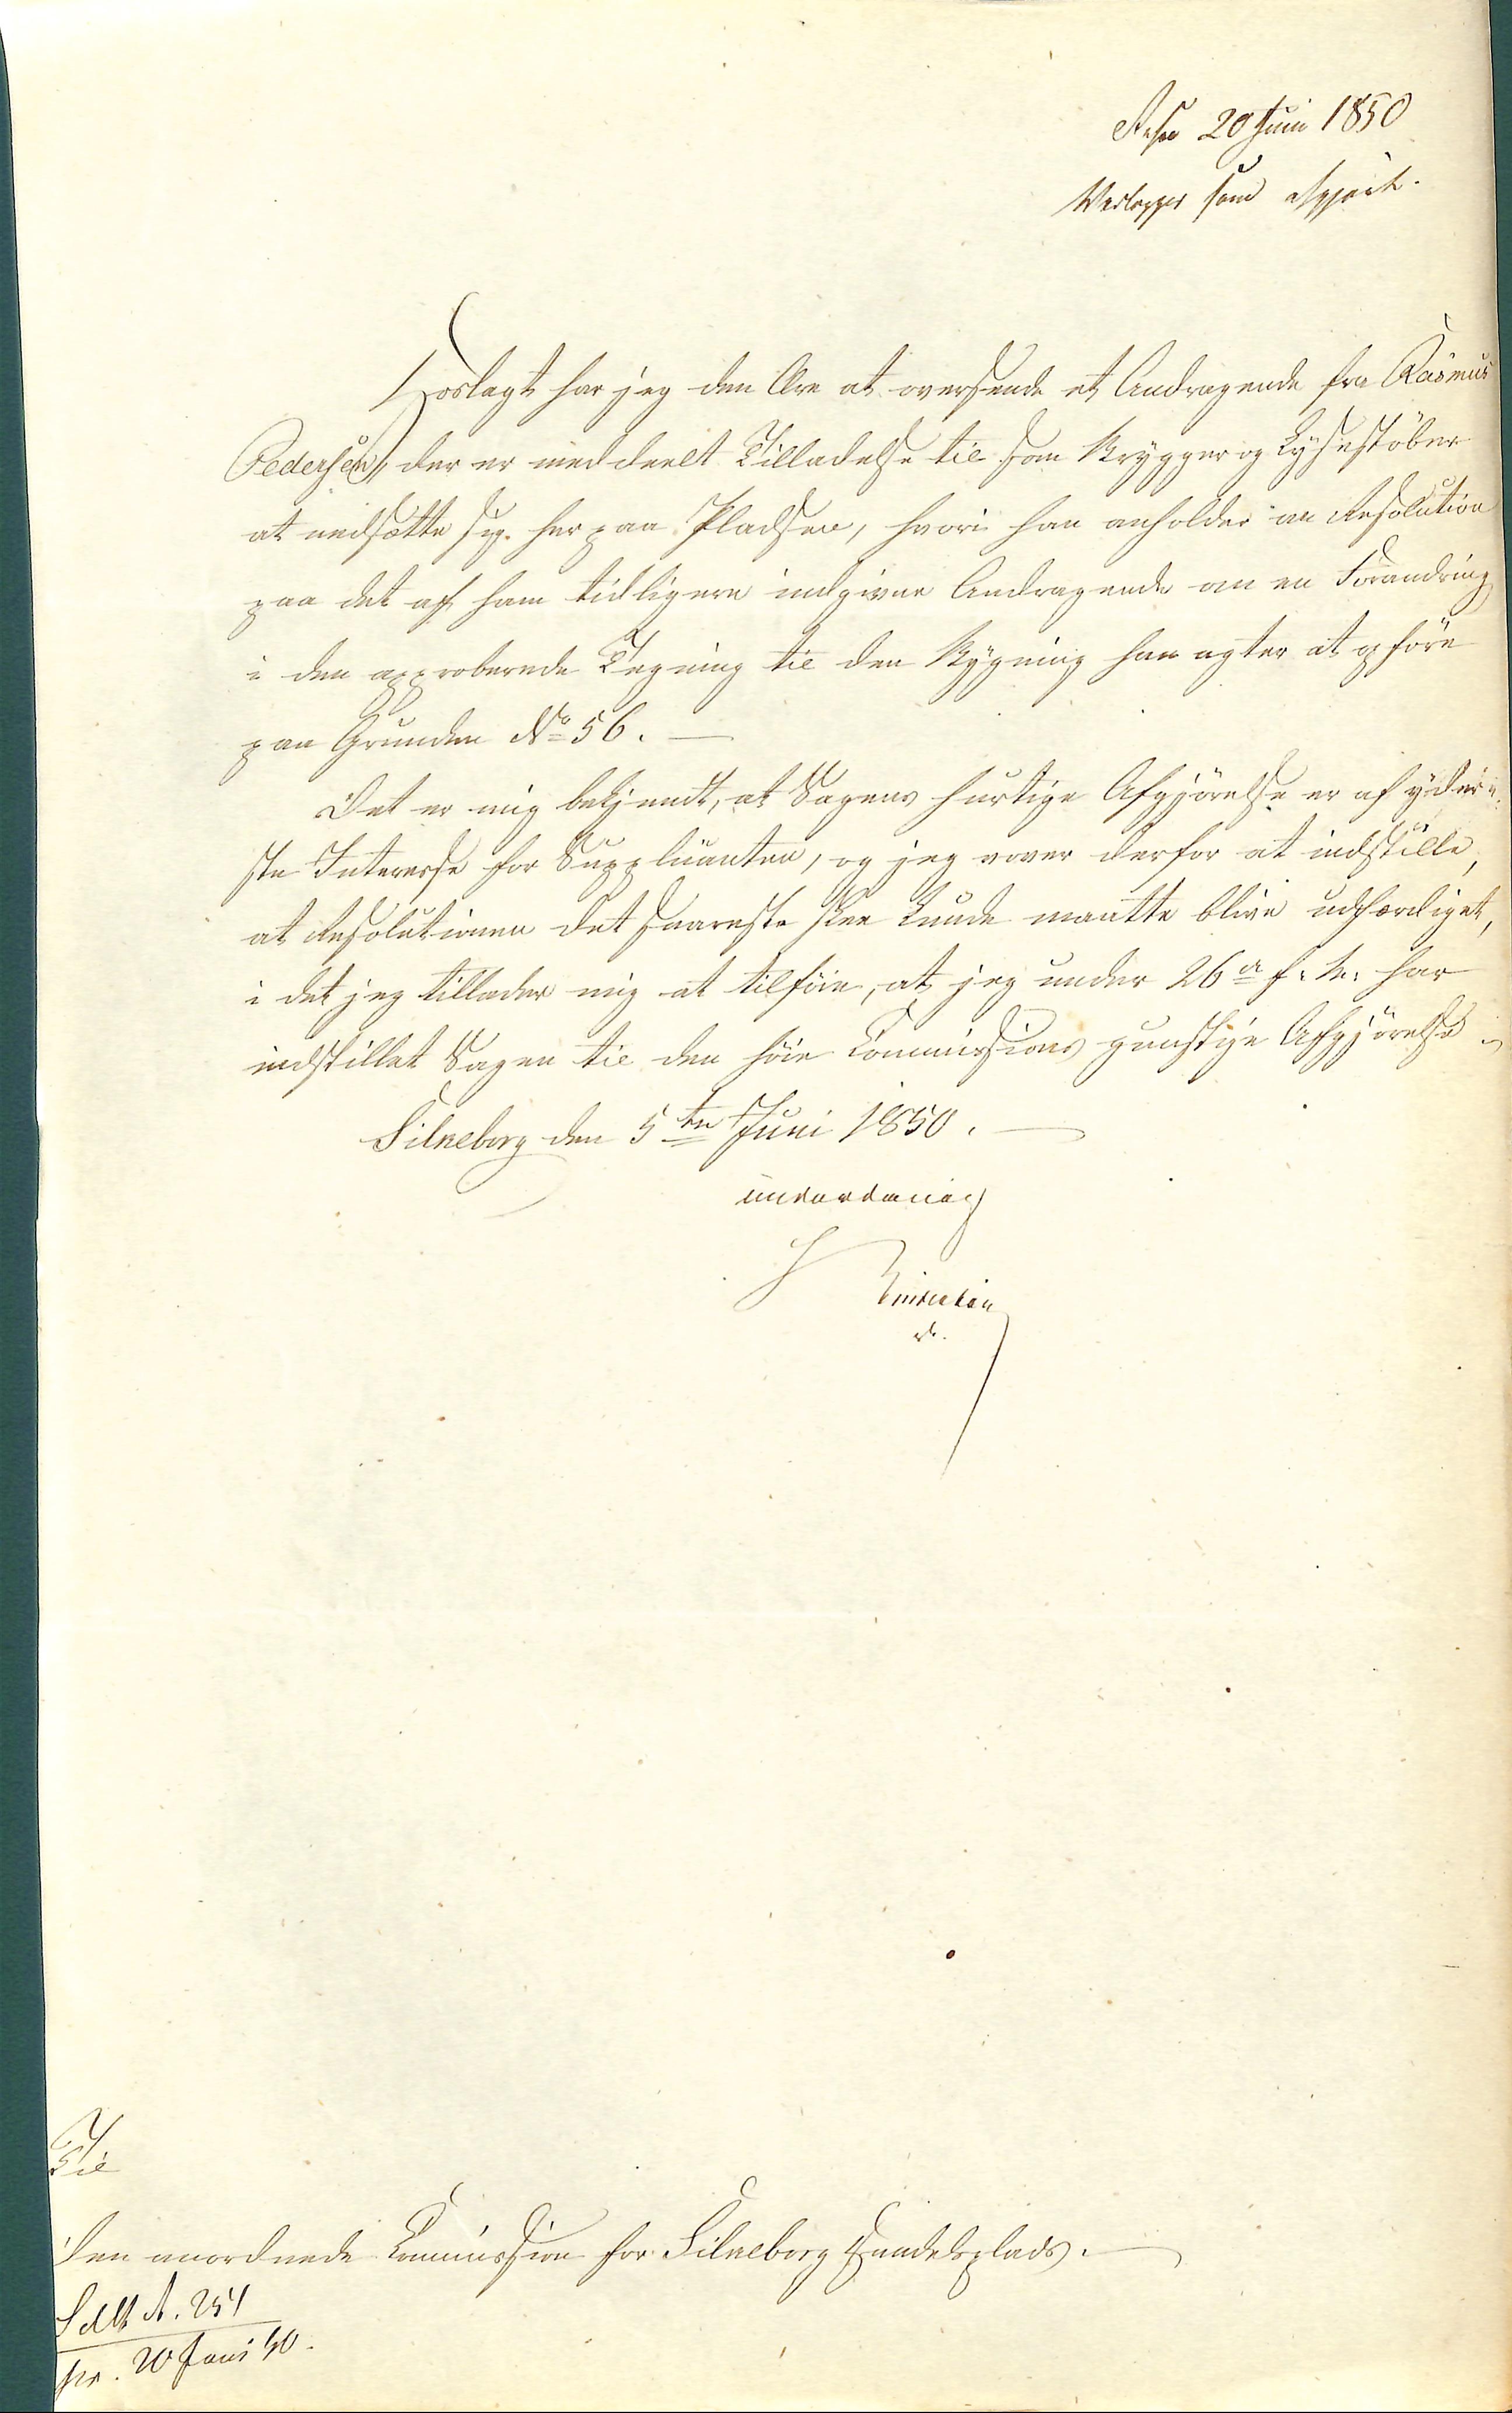 Resol 20 Juni 1850
Henlægges som afgjort.
Hoslagt har jeg den Ære at oversende et Andragende fra Rasmus
Pedersen, der er meddeelt Tilladelse til som Brygger og Lysestøber
at nedsætte sig her paa Pladsen, hvori han anholder om Resolution
paa det af ham tidligere indgivne Andragende om en Forandring
i den approberede Tegning til den Bygning han agter at opføre
paa Grunden No 56. —
Det er mig bekjendt, at Sagens hurtige Afgjørelse er af yder-
ste Interesse for Supplicanten, og jeg vover derfor at indstille,
at Resolutionen det snareste skee kunde maatte blive udfærdiget,
i det jeg tillader mig at tilføie, at jeg under 26de f. M. har
indstillet Sagen til den høie Commissions gunstige Afgjørelse.
Silkeborg den 5te Juni 1850. —
underdanig
Til
den anordnede Commission for Silkeborg Handelsplads. —
S. 251
pr. 20 Juni 50.